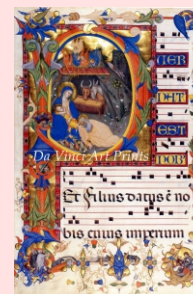 UER
NAT
EST
NOB
Da Vinci Art Prints
Et filius datus ē no
bis cuius imperium